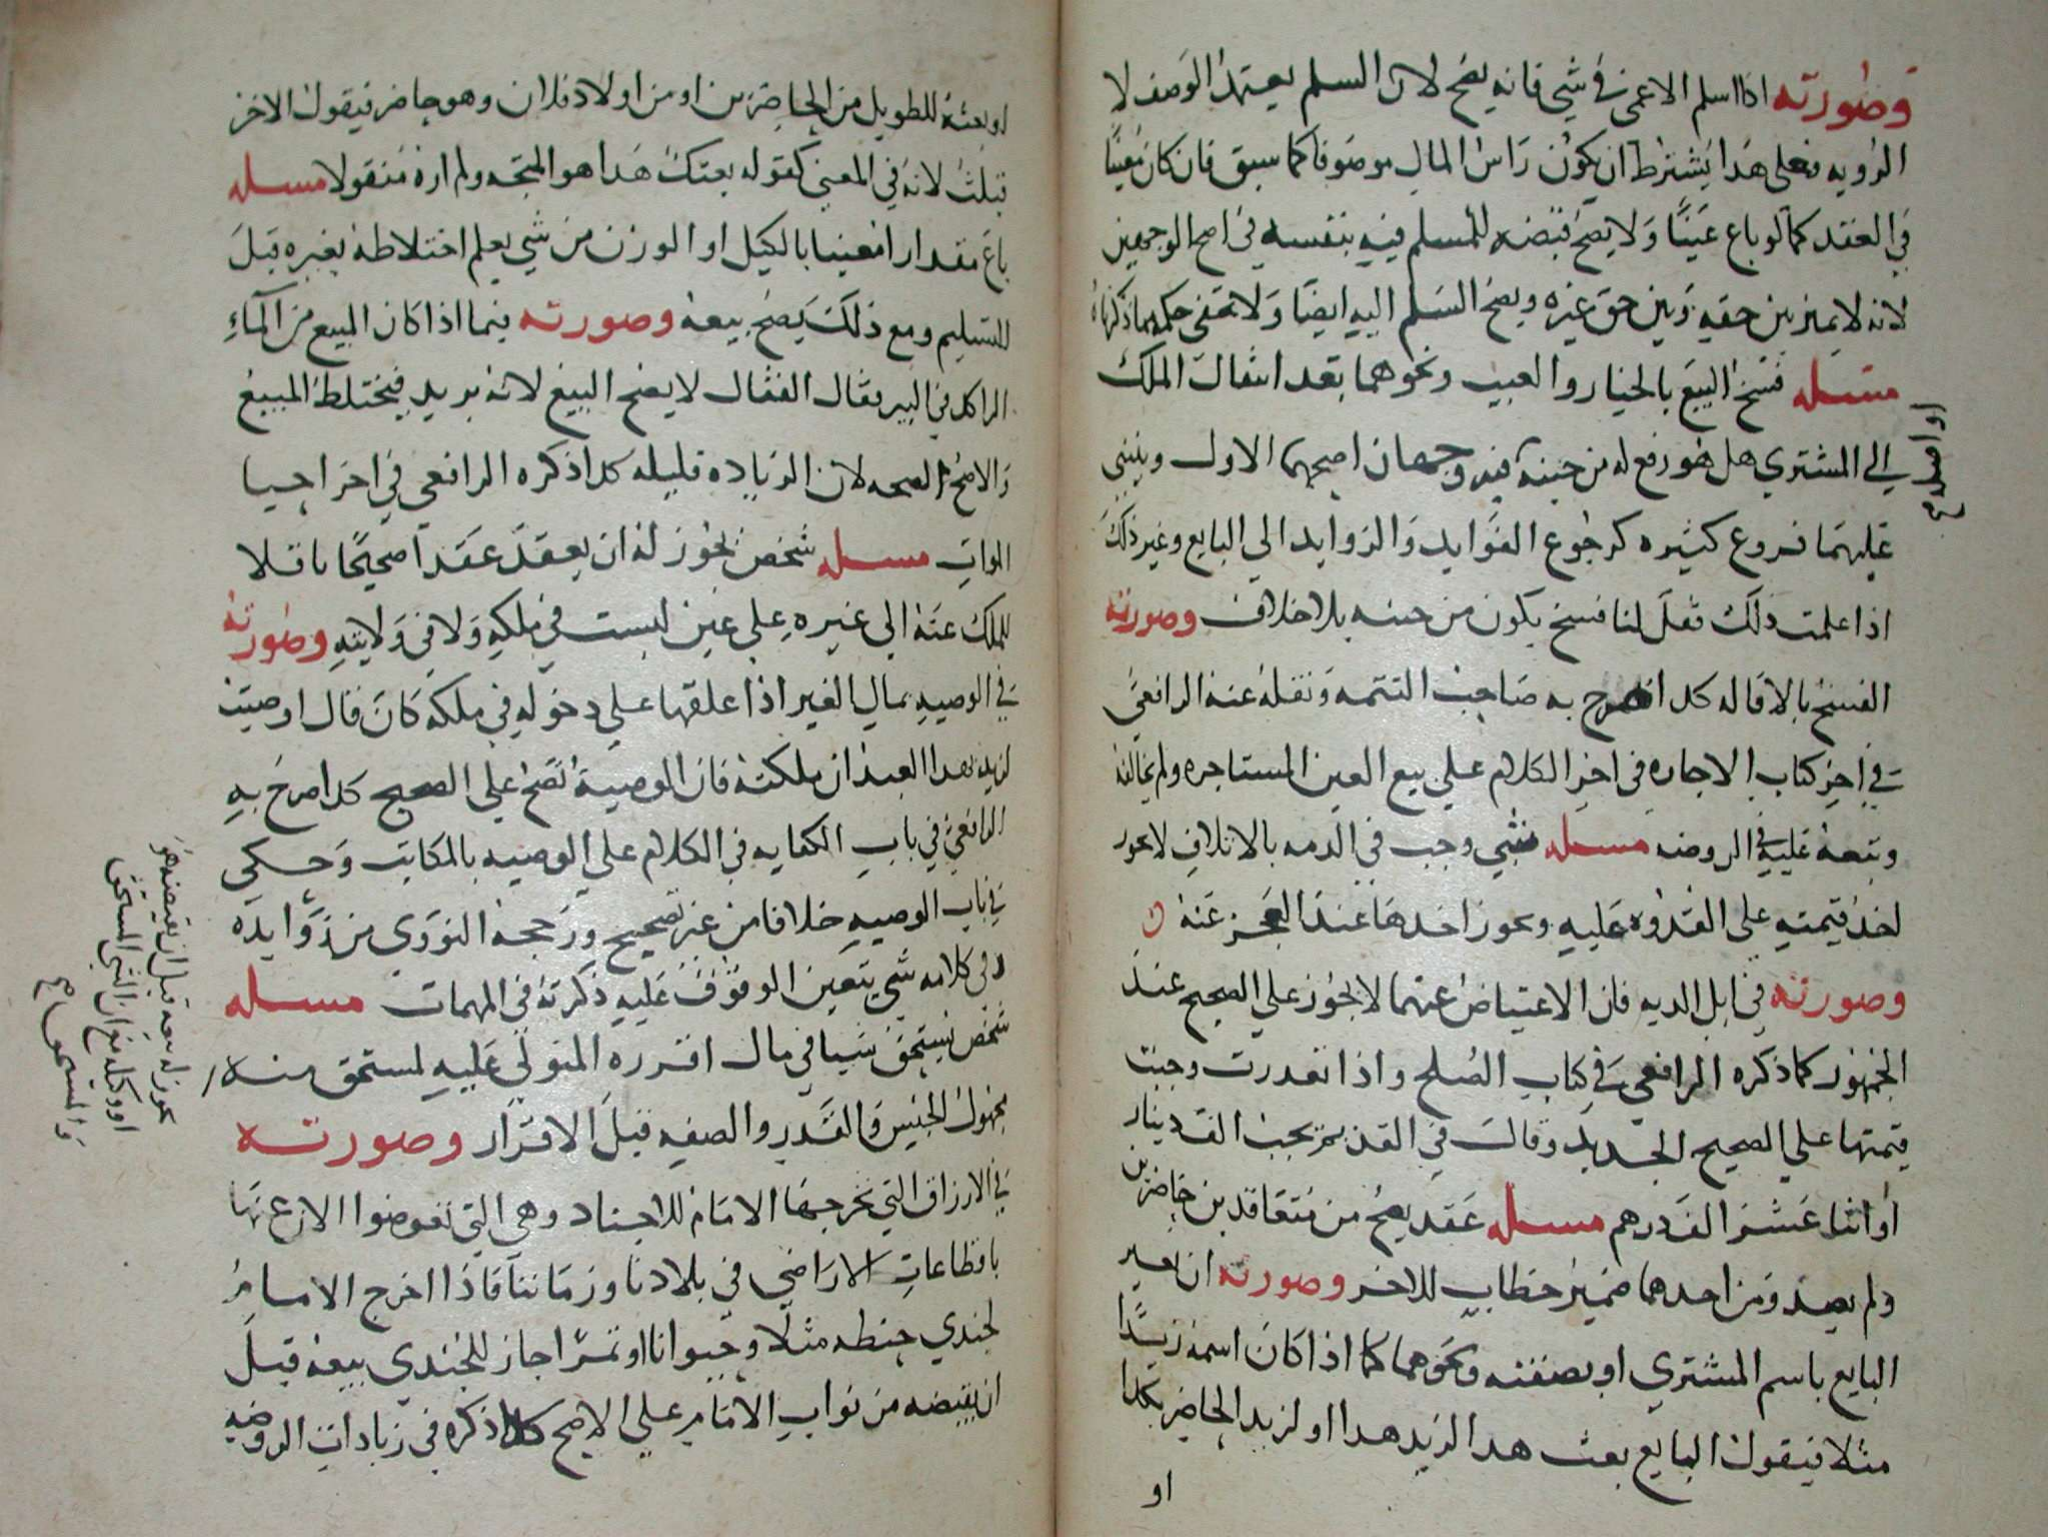 وصورته اذا اسلم الاعمى في شي فانه يصح لان السلم يعتمد الوصف لا
الرويه فعلى هذا يشترط ان يكون راس المال موصوفا كما سبق فان كان معينا
في العقد كما لو باع عينا ولا يصح قبضه للمسلم فيه بنفسه في اصح الوجهين
لانه لا يميز بين حقه وبين حق غيره ويصح السلم اليه ايضا ولا تخفى حكمه مما ذكرناه
مسله فسخ البيع بالخيار والعيب ونحوهما بعد انتقال الملك
الي المشتري هل هو رفع له من حينه فيه وجهان اصحهما الاول وينبني
او اصله
عليهما فروع كثيره كرجوع الفوايد والزوايد الي البايع وغير ذلك
اذا علمت ذلك فعل لنا فسخ يكون من حينه بلا خلاف وصورته
الفسخ بالاقاله كدا صرح به صاحب التتمه ونقله عنه الرافعي
في اخر كتاب الاجاره في اخر الكلام علي بيع العين المستاجره ولم يخالفه
وتبعه عليه في الروضه مسله شي وجب في الدمه بالاتلاف لا يجوز
اخذ قيمته علي القدره عليه ويجوز اخدها عند العجز عنه
وصورته في ابل الديه فان الاعتياض عنها لا يجوز علي الصحيح عند
الجمهور كما ذكره الرافعي في كتاب الصلح واذا تعدرت وجبت
قيمتها علي الصحيح الجديد وقال في القديم يجب الف دينار
او اثنا عشر الف درهم مسله عقد يصح من متعاقدين حاضرين
ولم يصدر من احدهما ضمير خطاب للاخر وصورته ان يعبر
البايع باسم المشتري او بصفته ونحوهما كما اذا كان اسمه زيدا
مثلا فيقول البايع بعت هدا لزيد هدا او لزيد الحاضر بكدا
او
او بعته للطويل من الحاضرين او من اولاد فلان وهو حاضر فيقول الاخر
قبلت لانه في المعني كقوله بعتك هدا هو المتجه ولم اره منقولا مسله
باع مقدارا معينا بالكيل او الوزن من شي يعلم اختلاطه بغيره قبل
التسليم ومع ذلك يصح بيعه وصورته فيما اذا كان المبيع من المآء
الراكد في البير فقال القفال لا يصح البيع لانه يزيد فيختلط المبيع
والاصح الصحه لان الزياده قليله كدا ذكره الرافعي في اخر احيا
الموات مسله شخص يجوز له ان يعقد عقدا صحيحا ناقلا
للملك عنه الي غيره علي عين ليست في ملكه ولا في ولايته وصورته
في الوصيه بمال الغير اذا علقها علي دخوله في ملكه كان قال اوصيت
لزيد بهدا العبد ان ملكته فان الوصية تصح علي الصحيح كدا صرح به
الرافعي في باب الكتابه في الكلام علي الوصيه بالمكاتب وحكي
في باب الوصيه خلافا من غير تصحيح ورجحه النووي من زوايده
وفي كلامه شي يتعين الوقوف عليه ذكرته في المهمات مسله
شخص يستحق شيا في مال افرزه المتولي عليه لمستحق منه
مجهول الجنس والقدر والصفه قبل الافراز وصورته
في الارزاق التي يخرجها الامام للاجناد وهي التي تعوضوا الان عنها
باقطاعات الاراضي في بلادنا وزماننا فاذا اخرج الامام
لجندي حنطه مثلا وحيوانا او تمرا جاز للجندي بيعه قبل
ان يقبضه من نواب الامام علي الاصح كدا ذكره في زيادات الروضه
يجوز له بيعه قبل ان يقبضه هو
او وكيله مع ان الشي المستحق
والمستحق